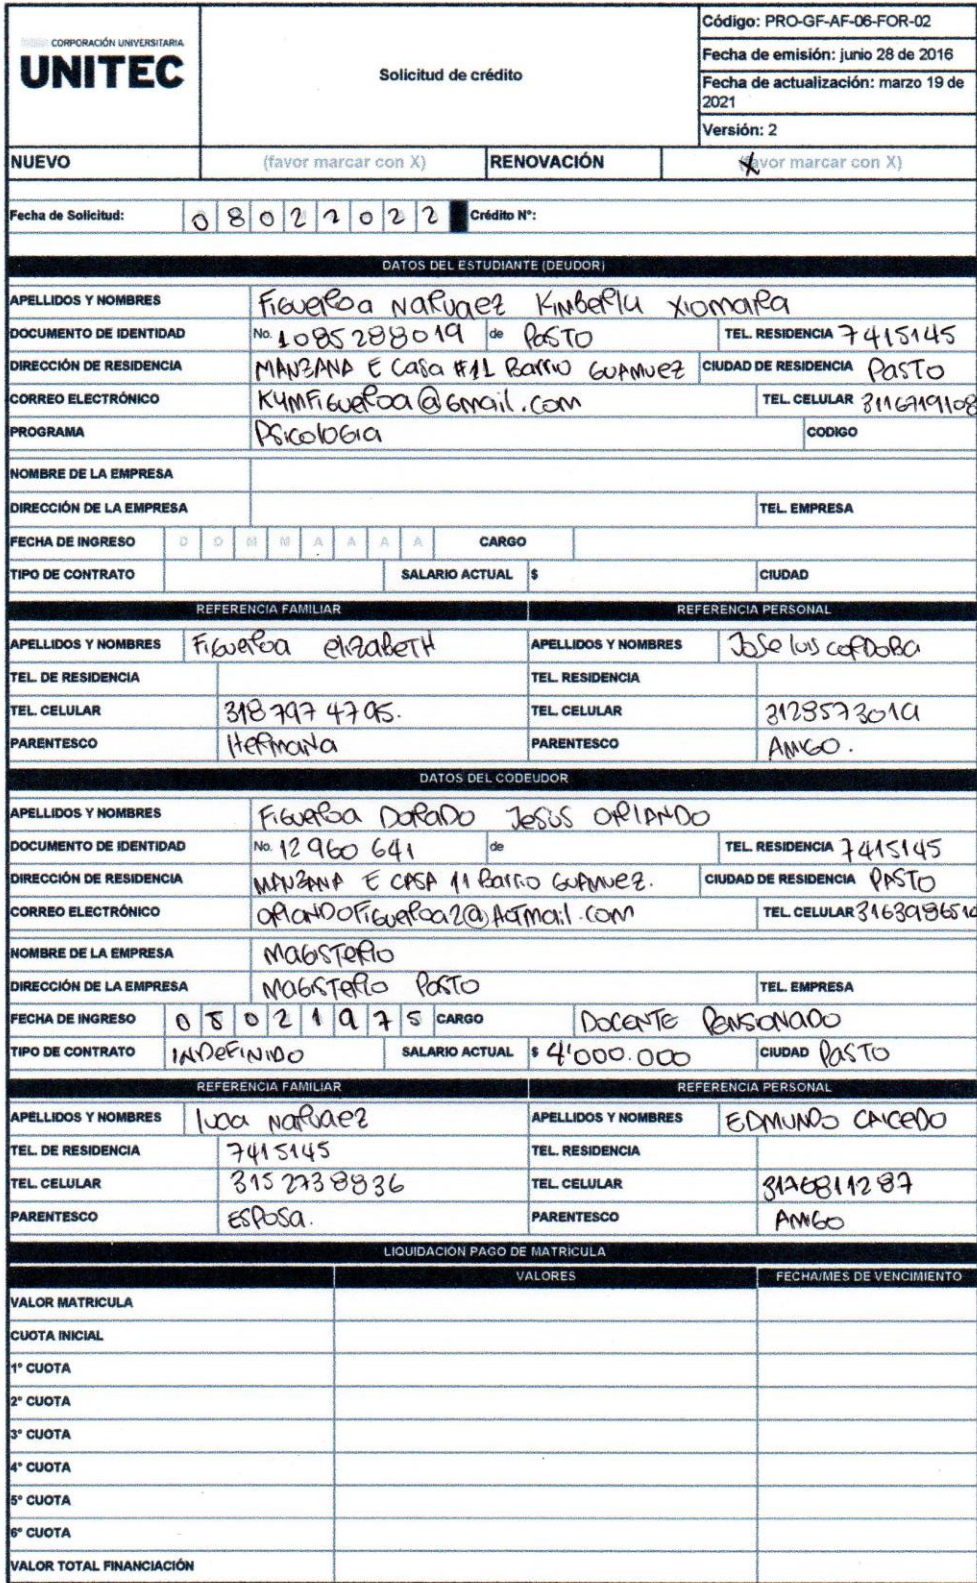 CORPORACIÓN UNIVERSITARIA
UNITEC
Solicitud de crédito
Código: PRO-GF-AF-06-FOR-02
Fecha de emisión: junio 28 de 2016
Fecha de actualización: marzo 19 de 2021
Versión: 2
NUEVO (favor marcar con X) RENOVACIÓN X (favor marcar con X)
Fecha de Solicitud: 0 8 0 2 2 0 2 2 Crédito N°:
DATOS DEL ESTUDIANTE (DEUDOR)
APELLIDOS Y NOMBRES Figueroa Narvaez Kimberly Xiomara
DOCUMENTO DE IDENTIDAD No. 1085288019 de PASTO TEL. RESIDENCIA 7415145
DIRECCIÓN DE RESIDENCIA MANZANA E Casa #11 Barrio GUAMUEZ CIUDAD DE RESIDENCIA PASTO
CORREO ELECTRÓNICO KYMFigueroa@Gmail.com TEL. CELULAR 3116719108
PROGRAMA PSicologia CODIGO
NOMBRE DE LA EMPRESA
DIRECCIÓN DE LA EMPRESA TEL. EMPRESA
FECHA DE INGRESO D D M M A A A A CARGO
TIPO DE CONTRATO SALARIO ACTUAL $ CIUDAD
REFERENCIA FAMILIAR REFERENCIA PERSONAL
APELLIDOS Y NOMBRES Figueroa elizabeTH APELLIDOS Y NOMBRES Jose luis corDoba
TEL. DE RESIDENCIA TEL. RESIDENCIA
TEL. CELULAR 318 797 4795. TEL. CELULAR 3128573019
PARENTESCO Hermana PARENTESCO AMIGO.
DATOS DEL CODEUDOR
APELLIDOS Y NOMBRES Figueroa DoraDo Jesus OrlANDO
DOCUMENTO DE IDENTIDAD No. 12960 641 de TEL. RESIDENCIA 7415145
DIRECCIÓN DE RESIDENCIA MANZANA E CASA 11 Barrio GUAMUEZ. CIUDAD DE RESIDENCIA PASTO
CORREO ELECTRÓNICO TEL. CELULAR
NOMBRE DE LA EMPRESA MagisTerio
DIRECCIÓN DE LA EMPRESA MagisTerio PasTo TEL. EMPRESA
FECHA DE INGRESO 0 5 0 2 1 9 7 5 CARGO DOCENTE PENSIONADO
TIPO DE CONTRATO INDEFINIDO SALARIO ACTUAL $ 4'000.000 CIUDAD PASTO
REFERENCIA FAMILIAR REFERENCIA PERSONAL
APELLIDOS Y NOMBRES Narvaez APELLIDOS Y NOMBRES EDMUNDO CAICEDO
TEL. DE RESIDENCIA 7415145 TEL. RESIDENCIA
TEL. CELULAR 315 2738836 TEL. CELULAR 3176811287
PARENTESCO ESPOSA. PARENTESCO AMIGO
LIQUIDACIÓN PAGO DE MATRÍCULA
VALORES FECHA/MES DE VENCIMIENTO
VALOR MATRICULA
CUOTA INICIAL
1° CUOTA
2° CUOTA
3° CUOTA
4° CUOTA
5° CUOTA
6° CUOTA
VALOR TOTAL FINANCIACIÓN